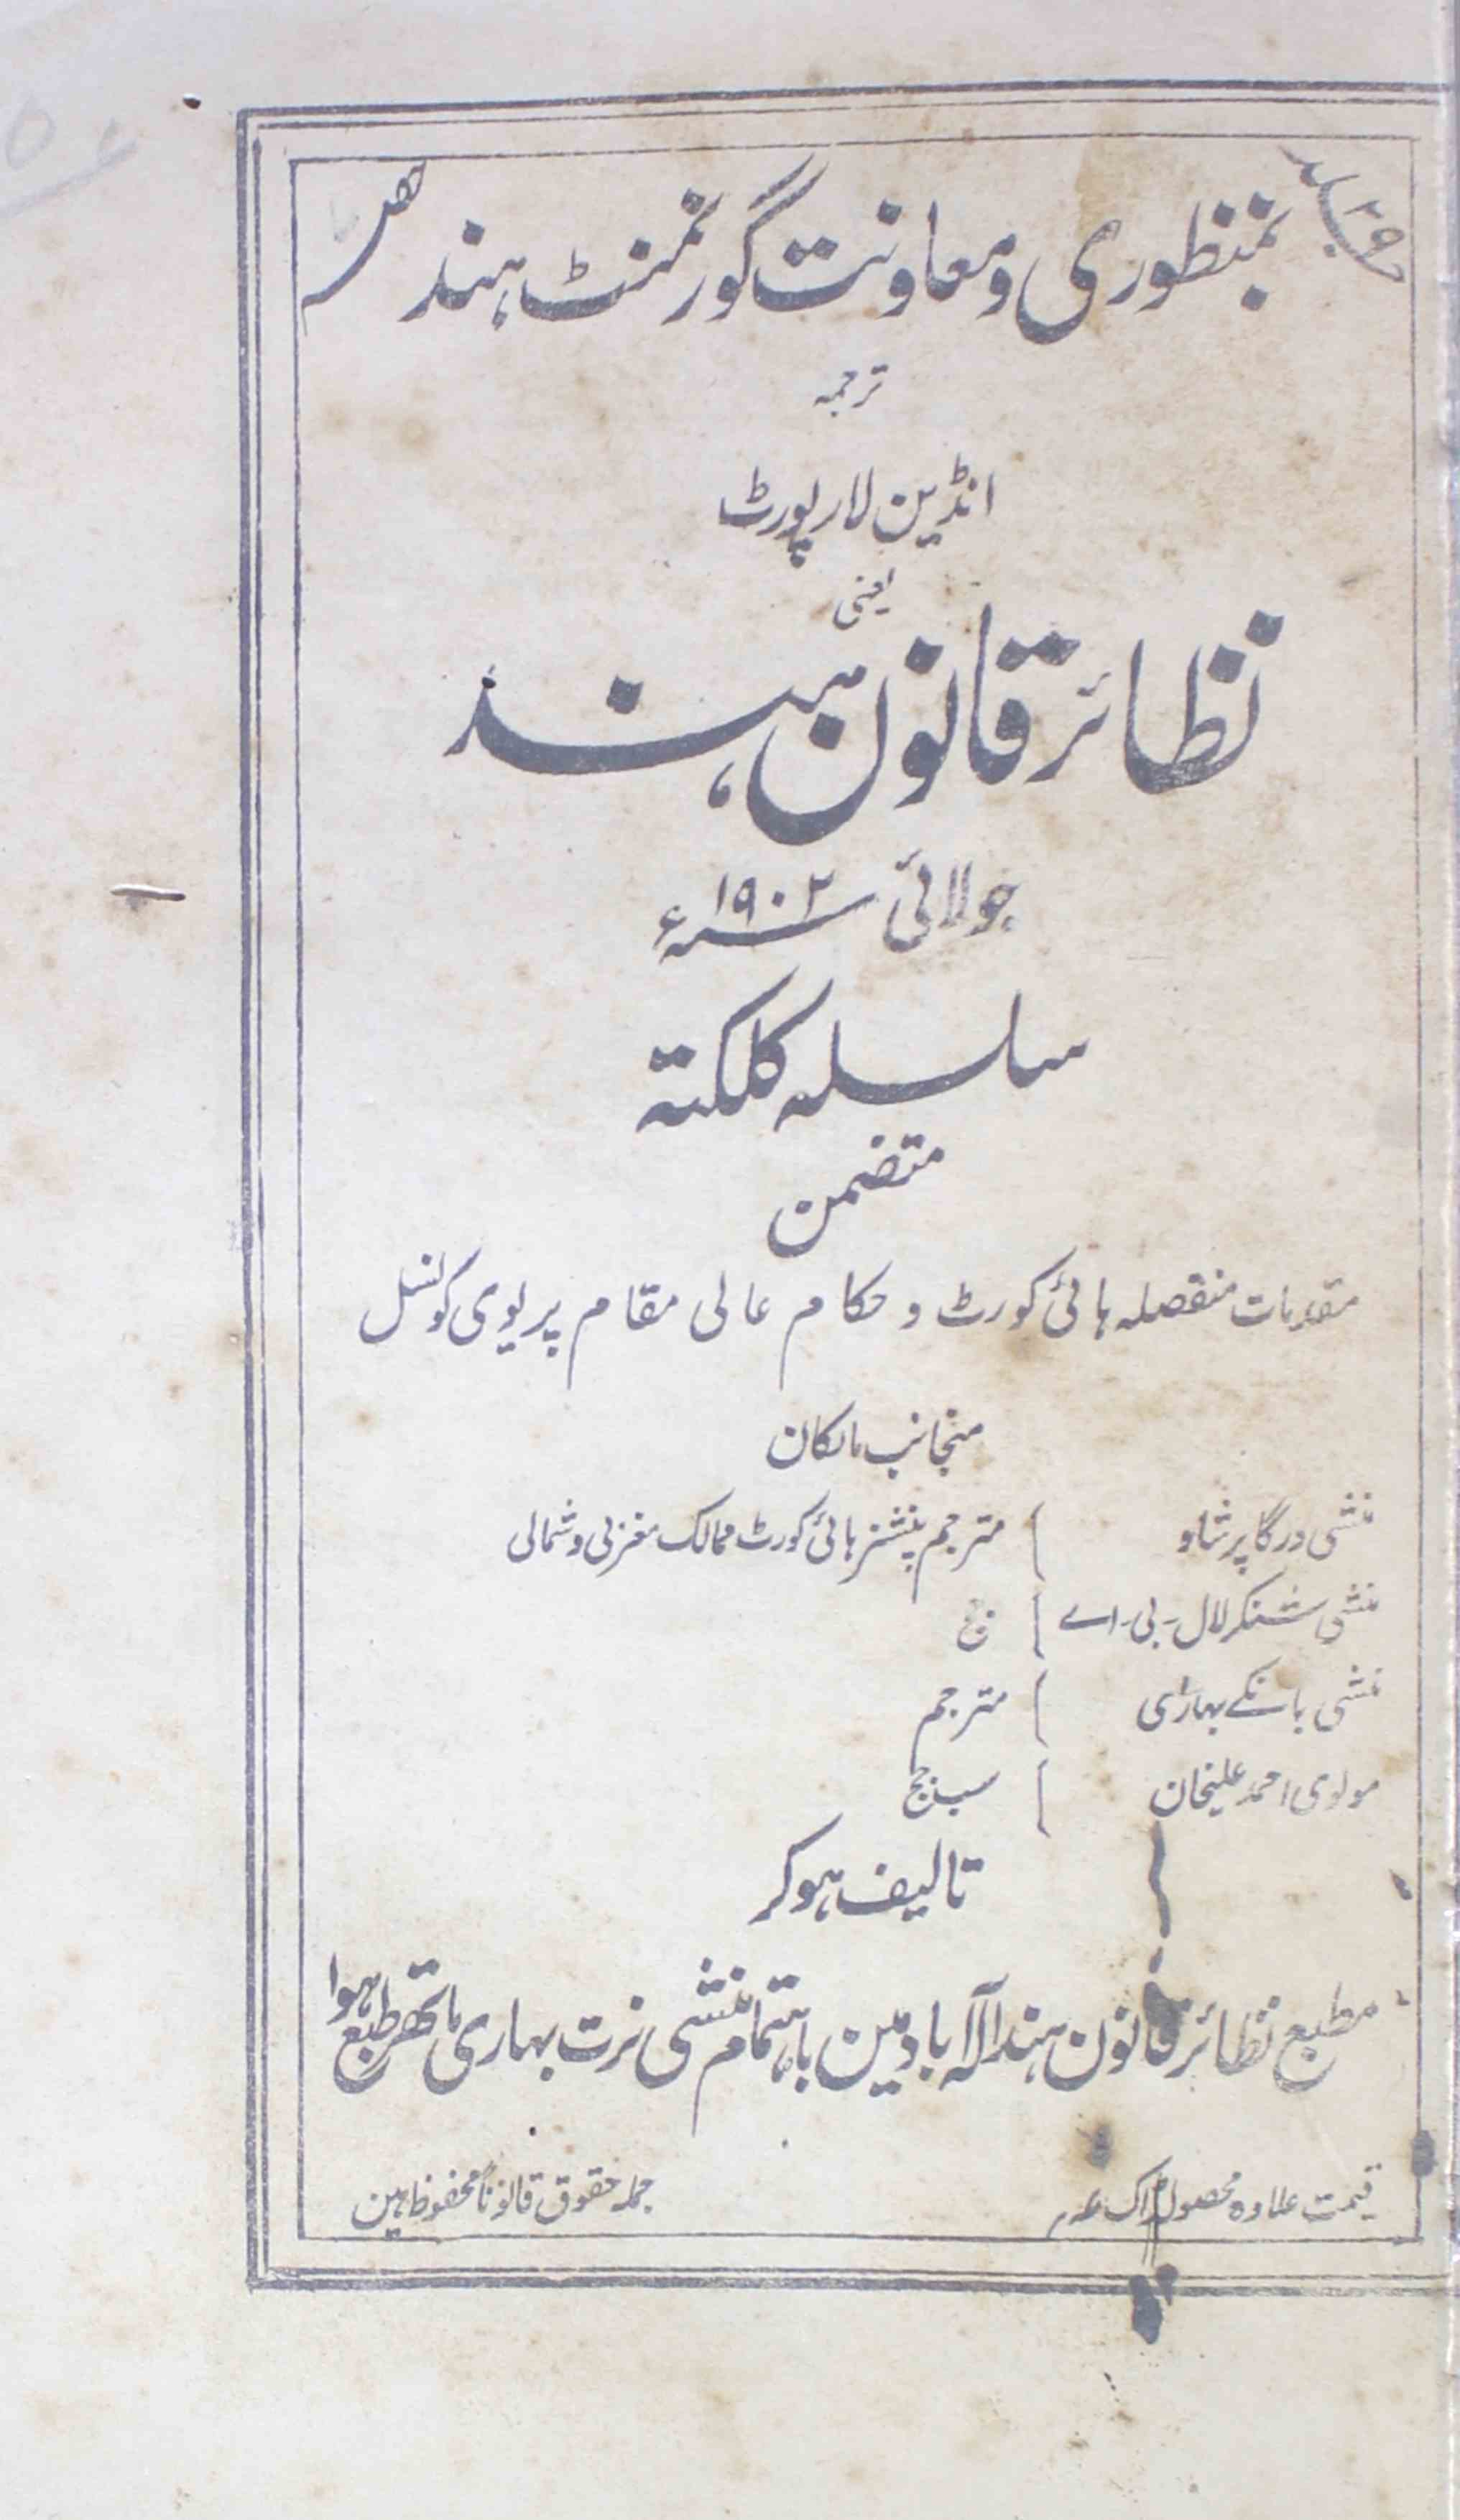 بمنظوری و معاونت گورنمنٹ ہند
ترجمہ
انڈین لا رپورٹ
یعنی
نظائر قانون ہند
جولائی سنہ ۱۹۰۲ء
سلسلہ کلکتہ
متضمن
مقدمات منفصلہ ہائی کورٹ و حکام عالی مقام پریوی کونسل
منجانب مالکان
منشی درگا پرشاد ) مترجم پنشنر ہائی کورٹ ممالک مغربی و شمالی
منشی شنکر لال۔ بی۔ اے )
منشی بانکے بہاری ) مترجم
مولوی احمد علیخان ) سب جج
تالیف ہو کر
مطبع نظائر قانون ہند الہ آباد مین باہتمام منشی نرت بہاری ماتھر طبع ہوا
قیمت علاوہ محصول ڈاک
جملہ حقوق قانوناً محفوظ ہین